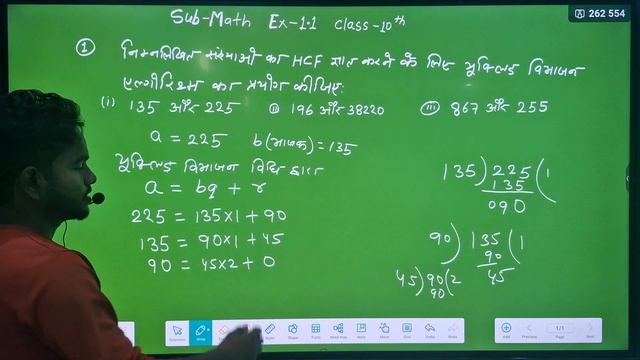 Sub-Math Ex-1.1 Class-10th
A 262 554
① निम्नलिखित संख्याओं का HCF ज्ञात करने के लिए यूक्लिड विभाजन
एल्गोरिथ्म का प्रयोग कीजिए:
(i) 135 और 225 (ii) 196 और 38220 (iii) 867 और 255
a = 225 b (भाजक) = 135
यूक्लिड विभाजन विधि द्वारा
a = bq + r
225 = 135×1 + 90
135 = 90×1 + 45
90 = 45×2 + 0
135) 225 (1
135
090
90) 135 (1
90
45
45) 90 (2
90
1/1